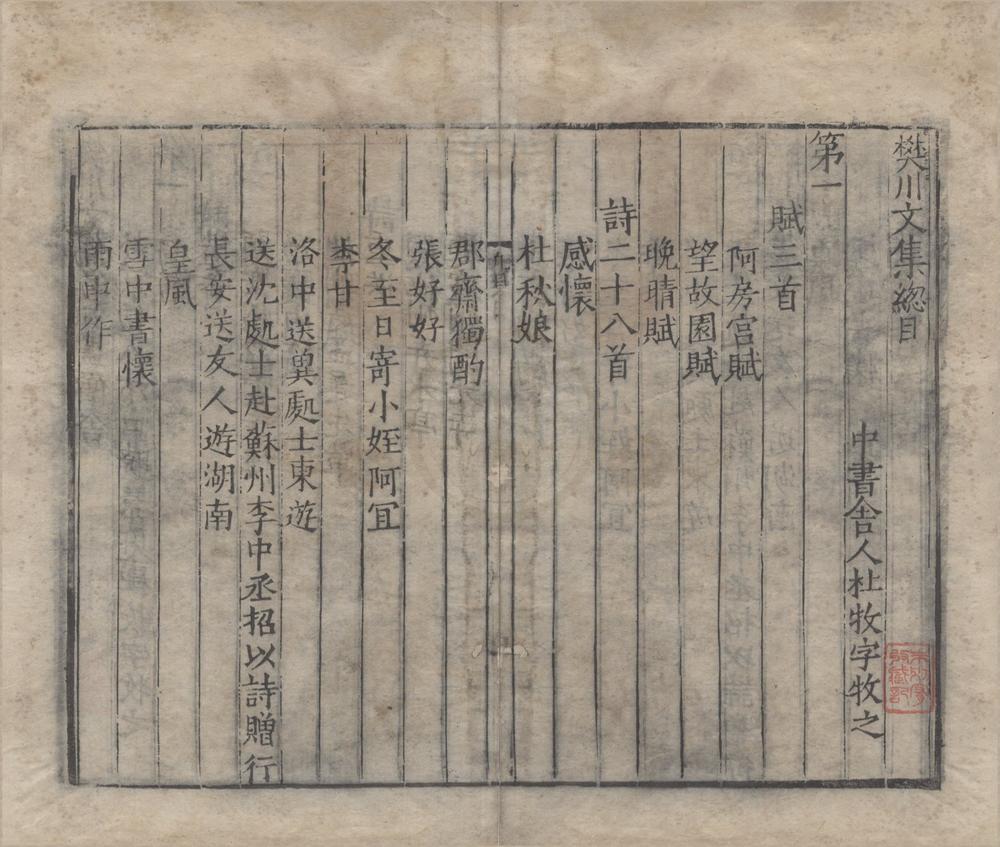 樊川文集緫目
中書舍人杜牧字牧之
第一
賦三首
阿房宫賦
望故園賦
晩晴賦
詩二十八首
感懷
杜秋娘
郡齋獨酌
張好好
冬至日寄小姪阿冝
李甘
洛中送兾處士東遊
送沈處士赴蘇州李中丞招以詩贈行
長安送友人遊湖南
皇風
雪中書懷
雨中作